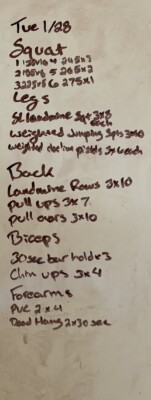 Tue 1/28
Squat
1 135x10 4 245x3
2 185x8 5 265x2
3 225x5 6 275x1
Legs
SL landmine Sqt 3x8 each
weighted Jumping Spts 3x10
weighted decline pistols 3x6 each
Back
Landmine Rows 3x10
pull ups 3x7
pull overs 3x10
Biceps
30sec bar hold x3
Chin ups 3x4
Forearms
PVC 2x4
Dead Hang 2x30 sec